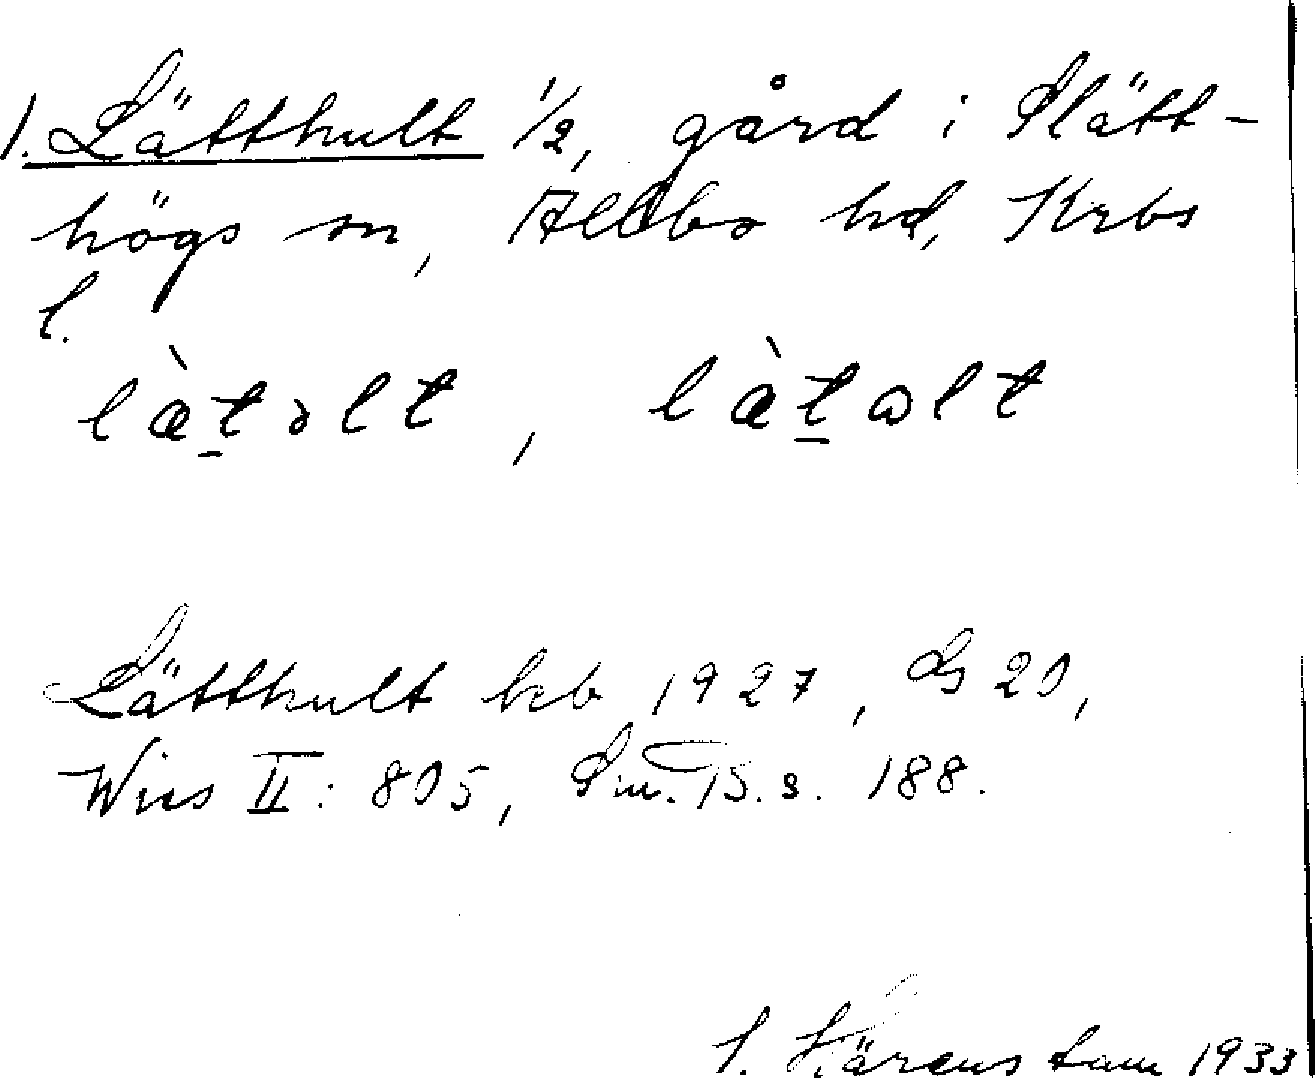 1. Lätthult 1/2, gård i Slätt-
högs sn, Allbo hd, Krbs
l.
læ̀t̠ɔlt, læ̀t̠ωlt
Lätthult kb 1927, Gs 20,
Wies II: 805, Sm. 15. s. 188.
S. Kärenstam 1933